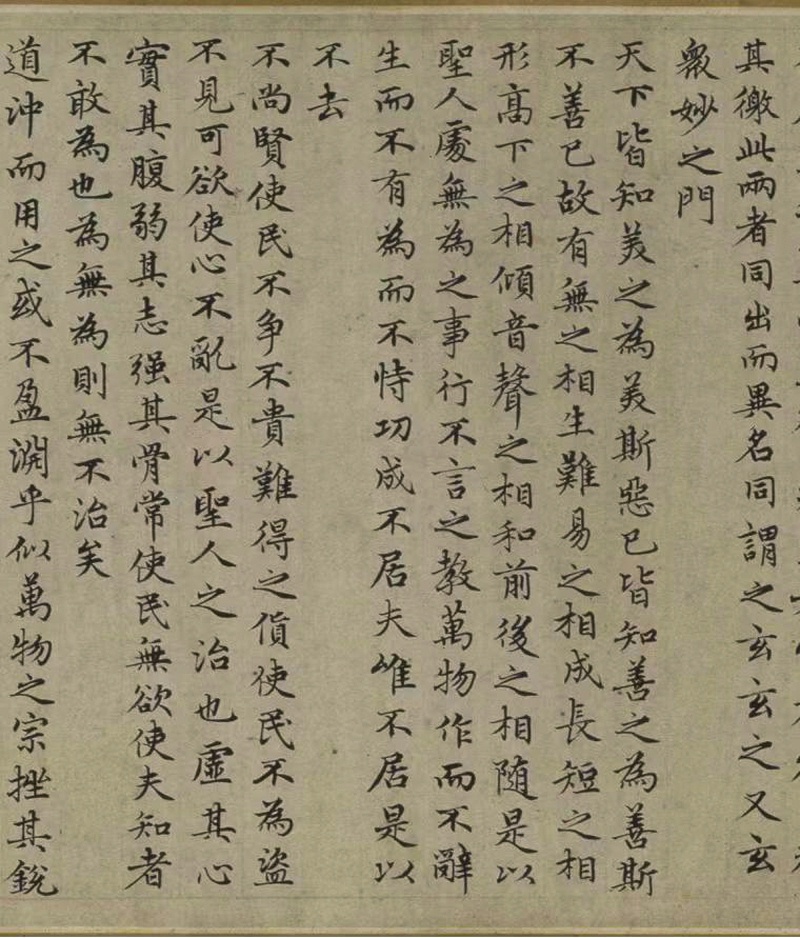 其徼此兩者同出而異名同謂之玄玄之又玄
衆妙之門
天下皆知美之為美斯惡已皆知善之為善斯
不善已故有無之相生難易之相成長短之相
形高下之相傾音聲之相和前後之相随是以
聖人處無為之事行不言之教萬物作而不辭
生而不有為而不恃功成不居夫唯不居是以
不去
不尚賢使民不争不貴難得之貨使民不為盜
不見可欲使心不亂是以聖人之治也虛其心
實其腹弱其志强其骨常使民無欲使夫知者
不敢為也為無為則無不治矣
道沖而用之或不盈淵乎似萬物之宗挫其銳